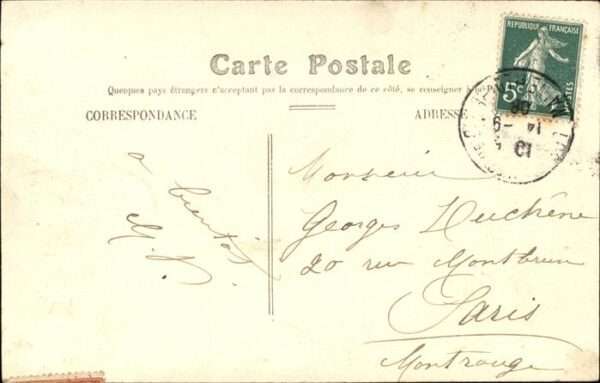 RÉPUBLIQUE FRANÇAISE
POSTES
5c
Carte Postale
Quelques pays étrangers n'acceptant pas la correspondance de ce côté, se renseigner à la
CORRESPONDANCE
ADRESSE
14 - 9
à
bientôt
Monsieur
Georges Duchêne
20 rue Montbrun
Paris
Montrouge